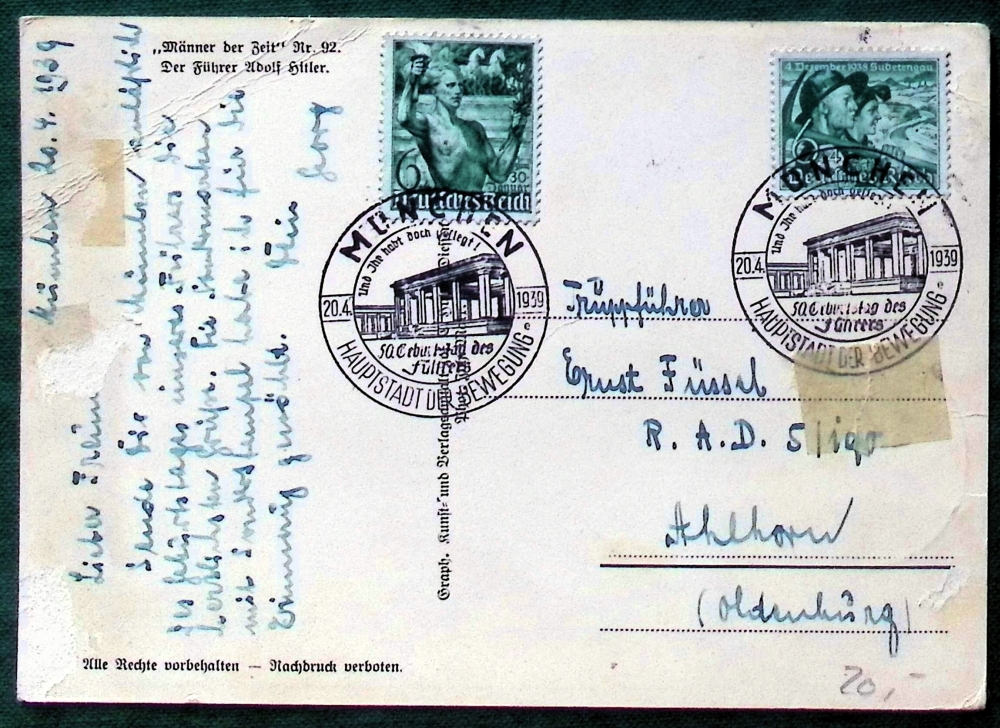 „Männer der Zeit“ Nr. 92.
Der Führer Adolf Hitler.
München 20.4.1939
Lieber Fränz
Sende Dir von München anläßlich
des Geburtstages unseres Führers die
herzlichsten Grüße. Die Briefmarken
mit Sonderstempel habe ich für die
gewählt. Dein
Georg
Alle Rechte vorbehalten — Nachdruck verboten.
Graph. Kunst- und Verlagsanstalt
6
30.
Januar
Deutsches Reich
4. Dezember 1938 Sudetengau
Deutsches Reich
MÜNCHEN
Und Ihr habt doch gesiegt!
20.4. 1939
50. Geburtstag des
Führers
e
HAUPTSTADT DER BEWEGUNG
MÜNCHEN
Und Ihr habt doch gesiegt!
20.4. 1939
50. Geburtstag des
Führers
e
HAUPTSTADT DER BEWEGUNG
Truppführer
Ernst Füssel
R. A. D. 5/190
Ahlhorn
(Oldenburg)
20,-